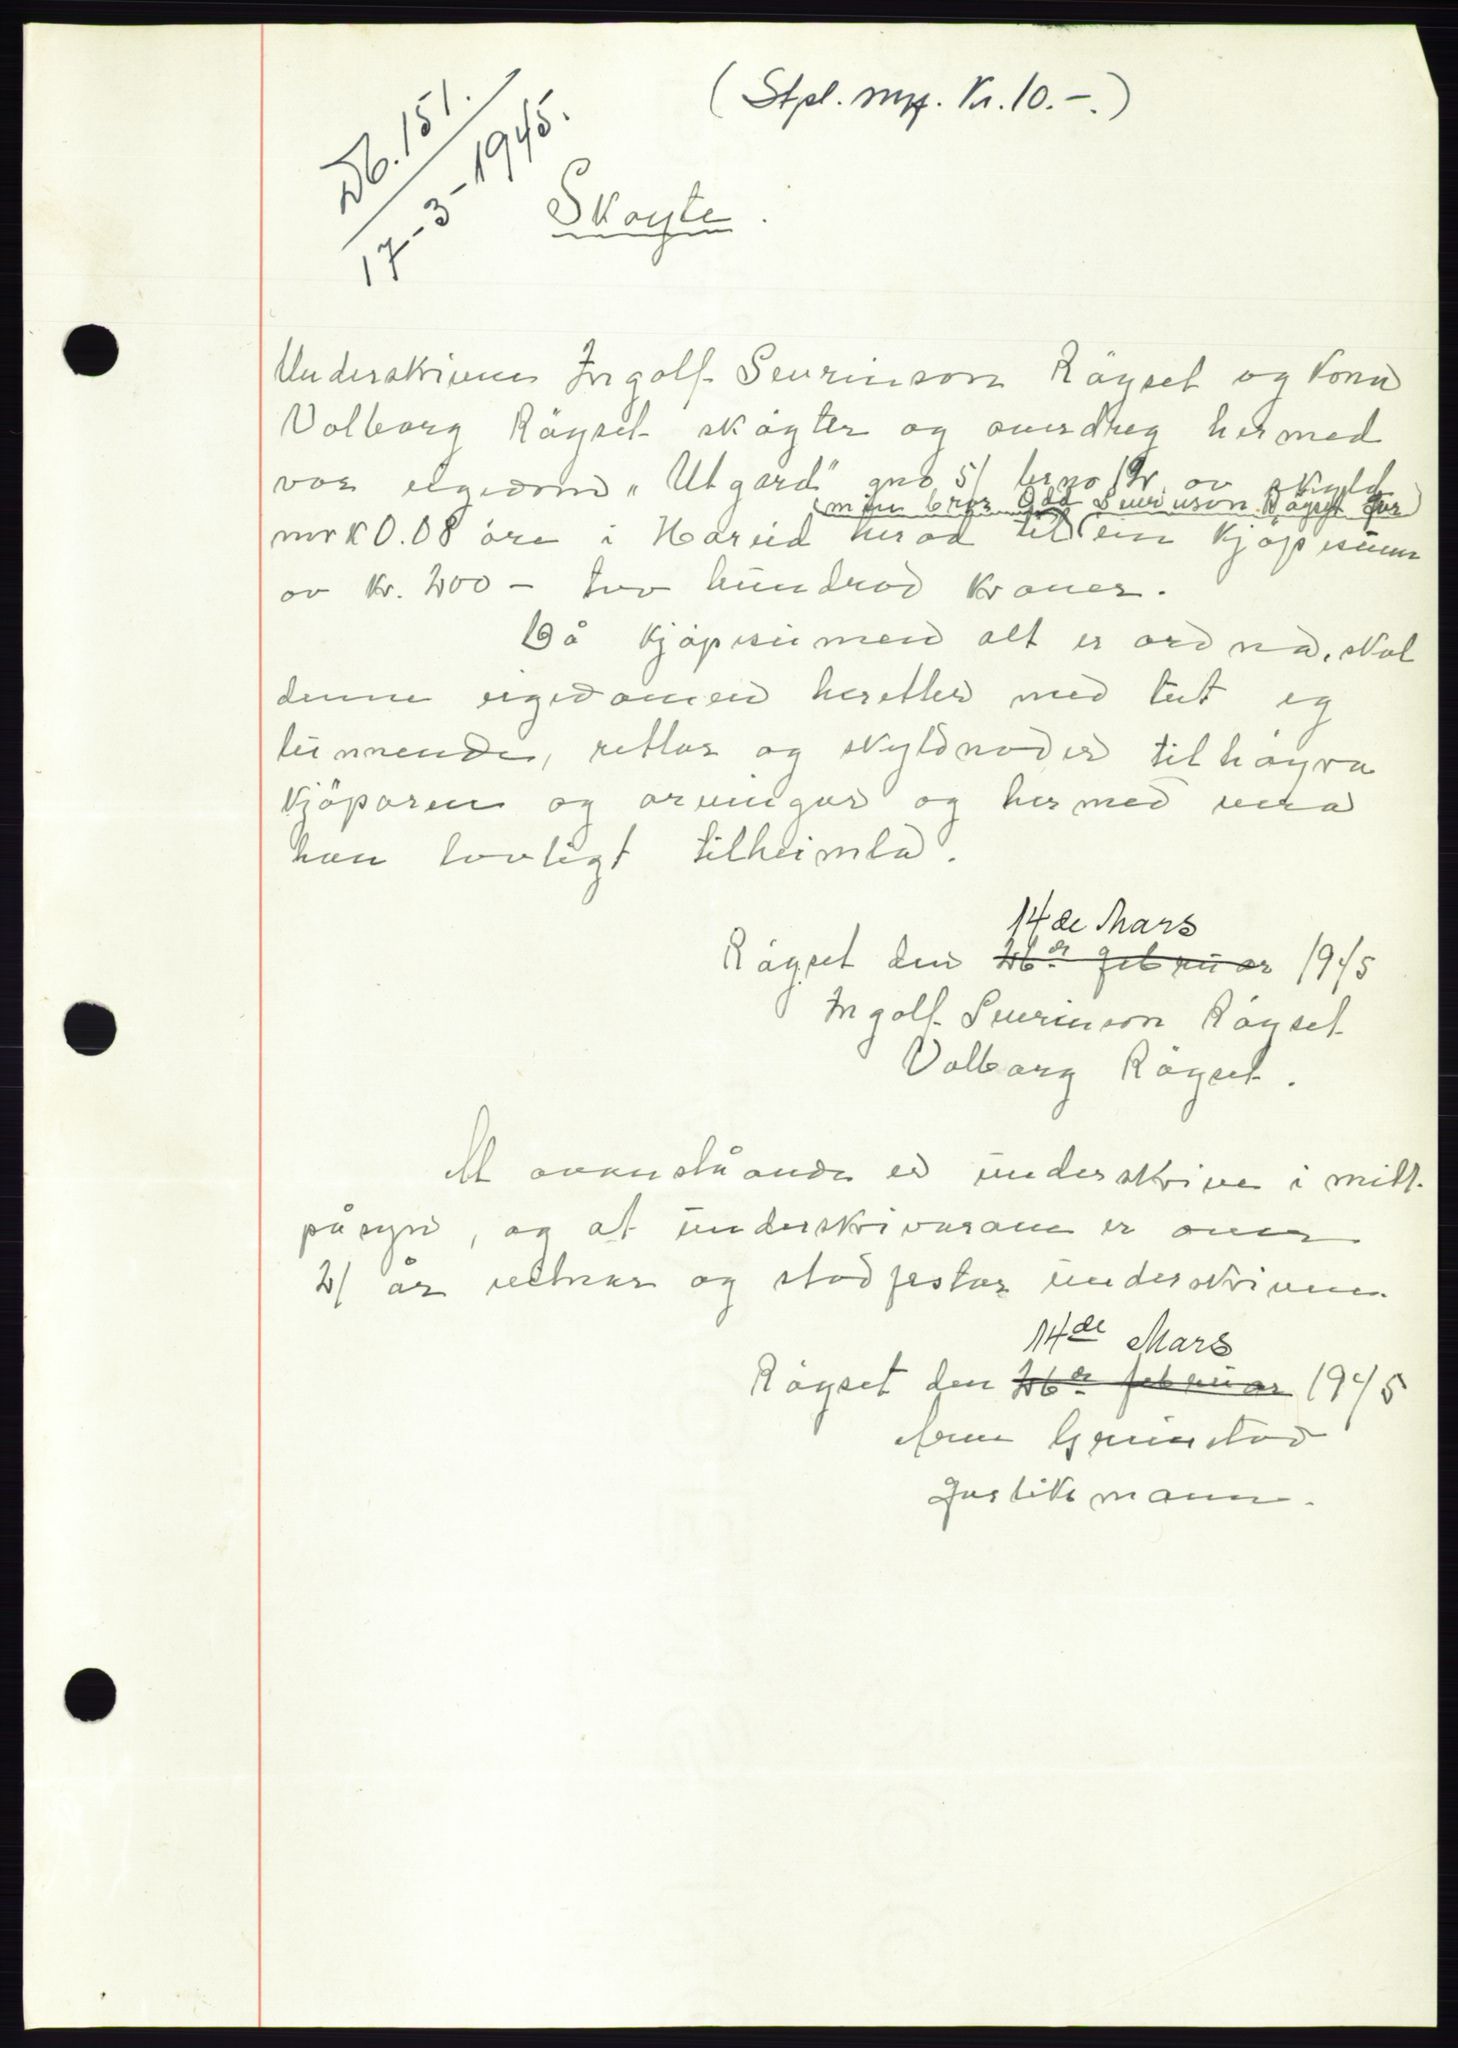 (Stpl. mrk. Kr. 10.-.)
Db. 151.
17-3-1945.
Skøyte.
Underskriven Ingolf Sevrinson Røyset og kona
Valborg Røyset skøyter og overdreg hermed
vår eigedom „Utgård" gno 51 brno 12 av skyld
min bror Odd Sevrinson Røyset for
mrk 0.08 øre i Hareid herad til ein kjøpesum
av kr. 200 - tvo hundrad kroner.
Då kjøpesumen alt er ordna, skal
denne eigedomen heretter med tut og
lunnende, rettar og skyldnader tilhøyra
kjøparen og arvingar og hermed vera
han lovligt tilheimla.
14de Mars
Røyset den 26de februar 1945
Ingolf Sevrinson Røyset
Valborg Røyset.
At ovanståande er underskrive i mitt
påsyn, og at underskrivarane er over
21 år vitnar og stadfestar underskriven.
14de Mars
Røyset den 26de februar 1945
Grimstad
forliksmann.